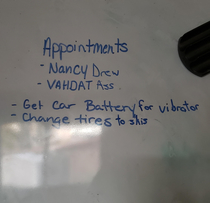 Appointments
- Nancy Drew
- VAHDAT Ass
- Get Car Battery for vibrator
- Change tires to skis